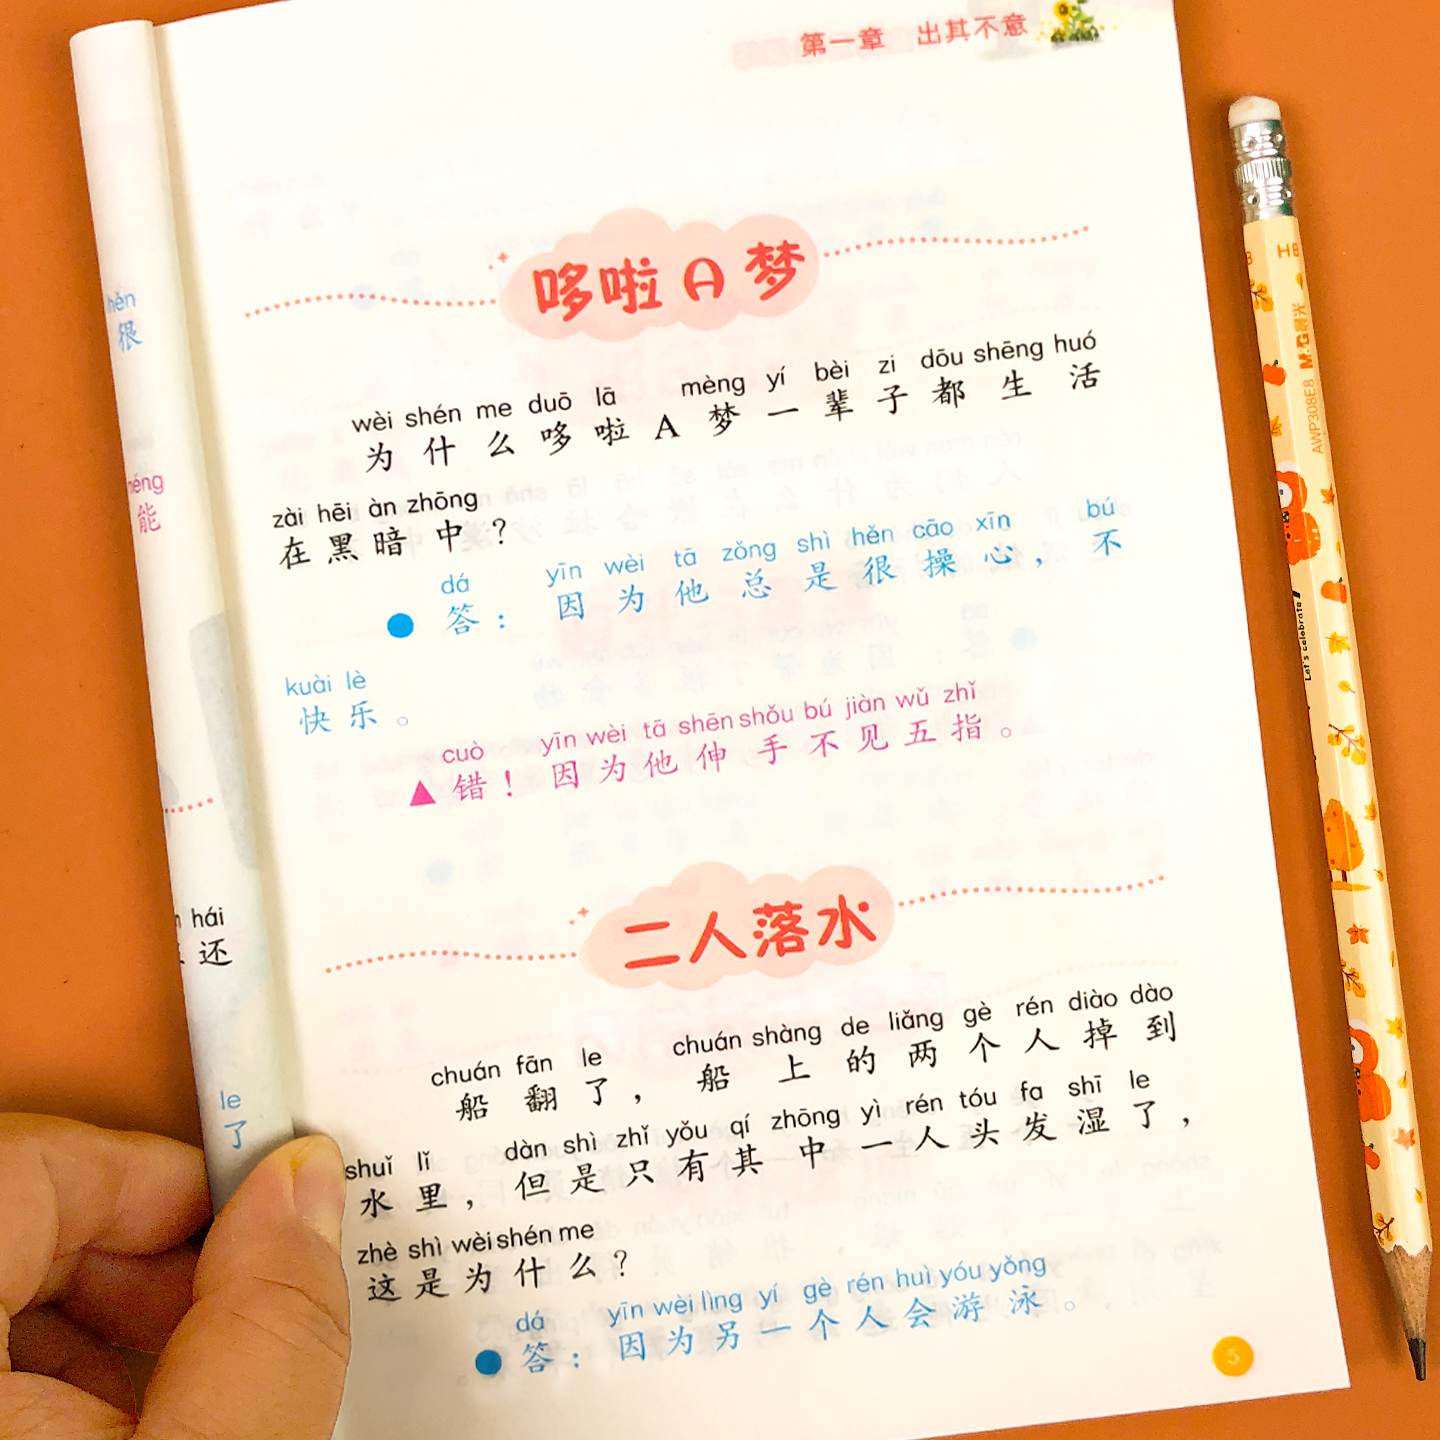 第一章 出其不意
哆啦A梦
wèi shén me duō lā mèng yí bèi zi dōu shēng huó
为什么哆啦A梦一辈子都生活
zài hēi àn zhōng
在黑暗中？
dá yīn wèi tā zǒng shì hěn cāo xīn bú
答：因为他总是很操心，不
kuài lè
快乐。
cuò yīn wèi tā shēn shǒu bú jiàn wǔ zhǐ
错！因为他伸手不见五指。
二人落水
chuán fān le chuán shàng de liǎng gè rén diào dào
船翻了，船上的两个人掉到
shuǐ lǐ dàn shì zhǐ yǒu qí zhōng yì rén tóu fa shī le
水里，但是只有其中一人头发湿了，
zhè shì wèi shén me
这是为什么？
dá yīn wèi lìng yí gè rén huì yóu yǒng
答：因为另一个人会游泳。
5
hěn
很
néng
能
hái
还
le
了
HB
M&G晨光
AWP308E8
Let's celebrate